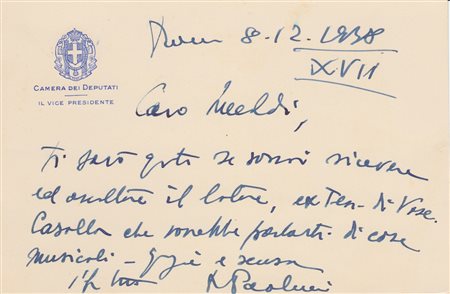 CAMERA DEI DEPUTATI
IL VICE PRESIDENTE
Roma 8-12-1938
XVII
Caro
Ti sarò grato se vorrai ricevere
ed ascoltare il latore, ex Ten. di Vasc.
Casella che vorrebbe parlarti di cose
musicali - Grazie e scusa
R Paolucci